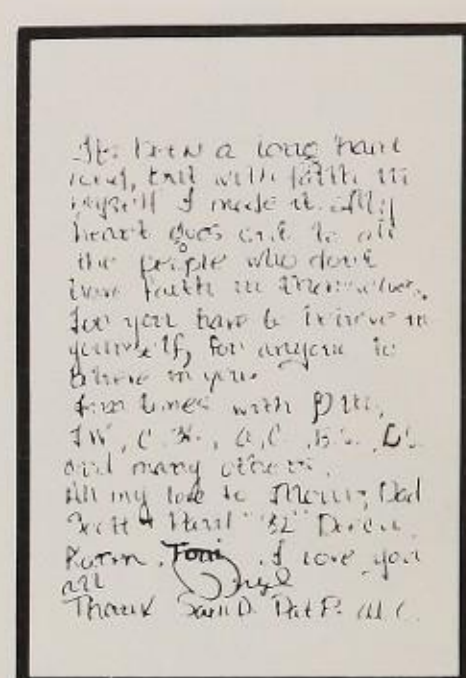 It's been a long hard
road, but with faith in
myself I made it. My
heart goes out to all
the people who dont
have faith in themselves.
For you have to believe in
yourself, for anyone to
believe in you.
fun times with
J.W., C.K., A.C.
and many others.
All my love to Mom, Dad
Scott + "32"
Toni. I love you
all
Thanx Sam D. Pat P.